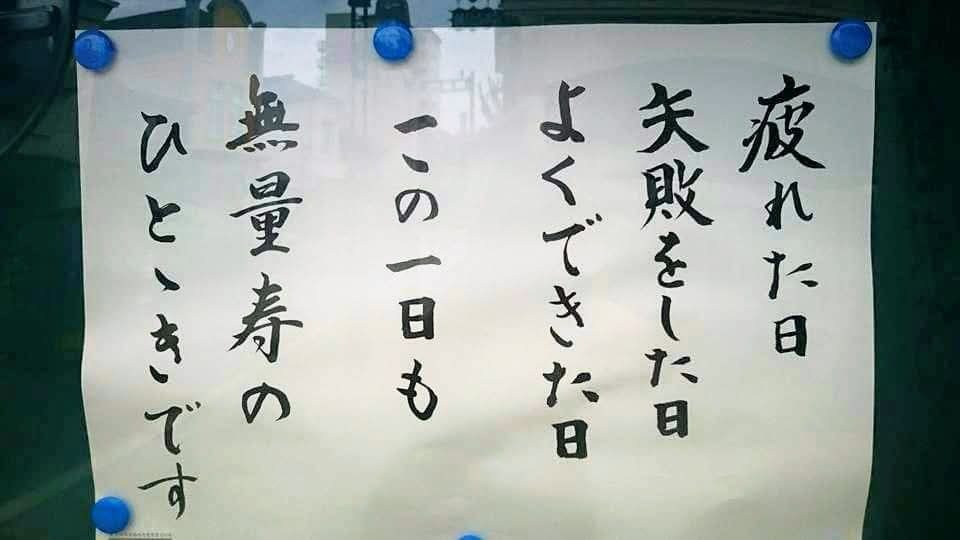 疲れた日
失敗をした日
よくできた日
この一日も
無量寿の
ひとゝきです